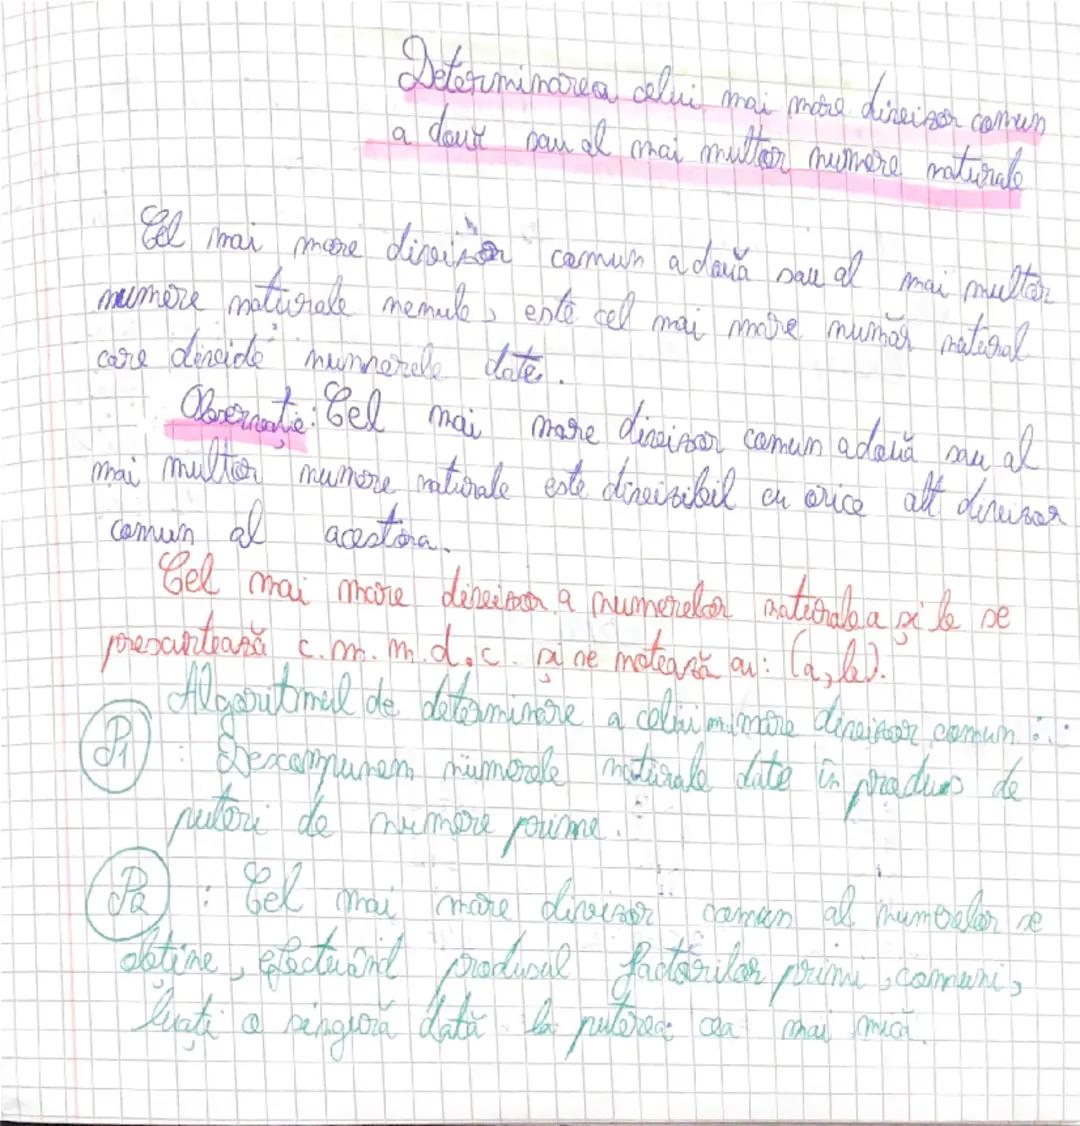 Determinarea celui mai mare divizor comun
a două sau al mai multor numere naturale
Cel mai mare divizor comun a două sau al mai multor
numere naturale nenule, este cel mai mare număr natural
care divide numerele date.
Observație: Cel mai mare divizor comun a două sau al
mai multor numere naturale este divizibil cu orice alt divizor
comun al acestora.
Cel mai mare divizor a numerelor naturale a și b se
prescurtează c.m.m.d.c. și se notează cu: (a,b).
Algoritmul de determinare a celui m.mare divizor comun :
P1 : Descompunem numerele naturale date în produs de
puteri de numere prime.
P2 : Cel mai mare divizor comun al numerelor se
obține, efectuând produsul factorilor primi, comuni,
luați o singură dată la puterea cea mai mică.